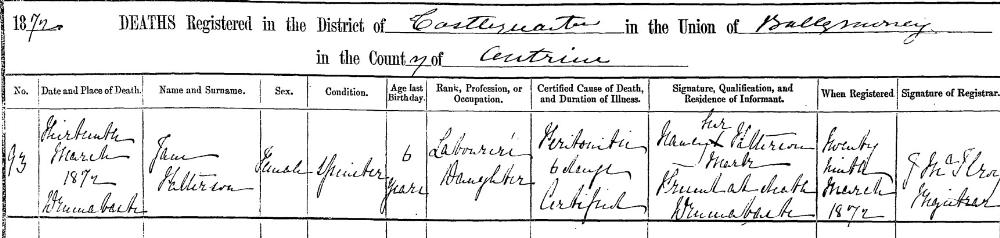 1872. DEATHS Registered in the District of Castlequarter in the Union of Ballymoney
in the County of Antrim
No. Date and Place of Death. Name and Surname. Sex. Condition. Age last Birthday. Rank, Profession, or Occupation. Certified Cause of Death, and Duration of Illness. Signature, Qualification, and Residence of Informant. When Registered Signature of Registrar.
93
Thirteenth
March
1872
Jane
Patterson
Female
Spinster
6
years
Labourer's
Daughter
Peritonitis
6 days
Certified
her
Nancy X Patterson
Mark
Present at death
Twenty
ninth
March
1872
Registrar